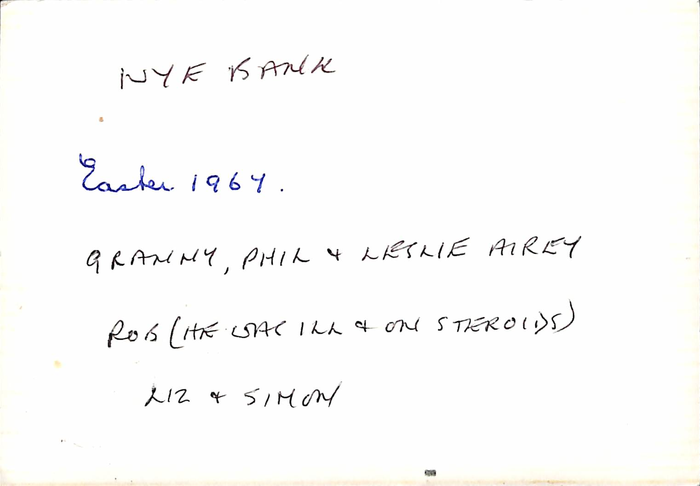 NYE BANK
Easter 1964.
GRANNY, PHIL & LESLIE AIREY
ROB (HE WAS ILL & ON STEROIDS)
LIZ & SIMON